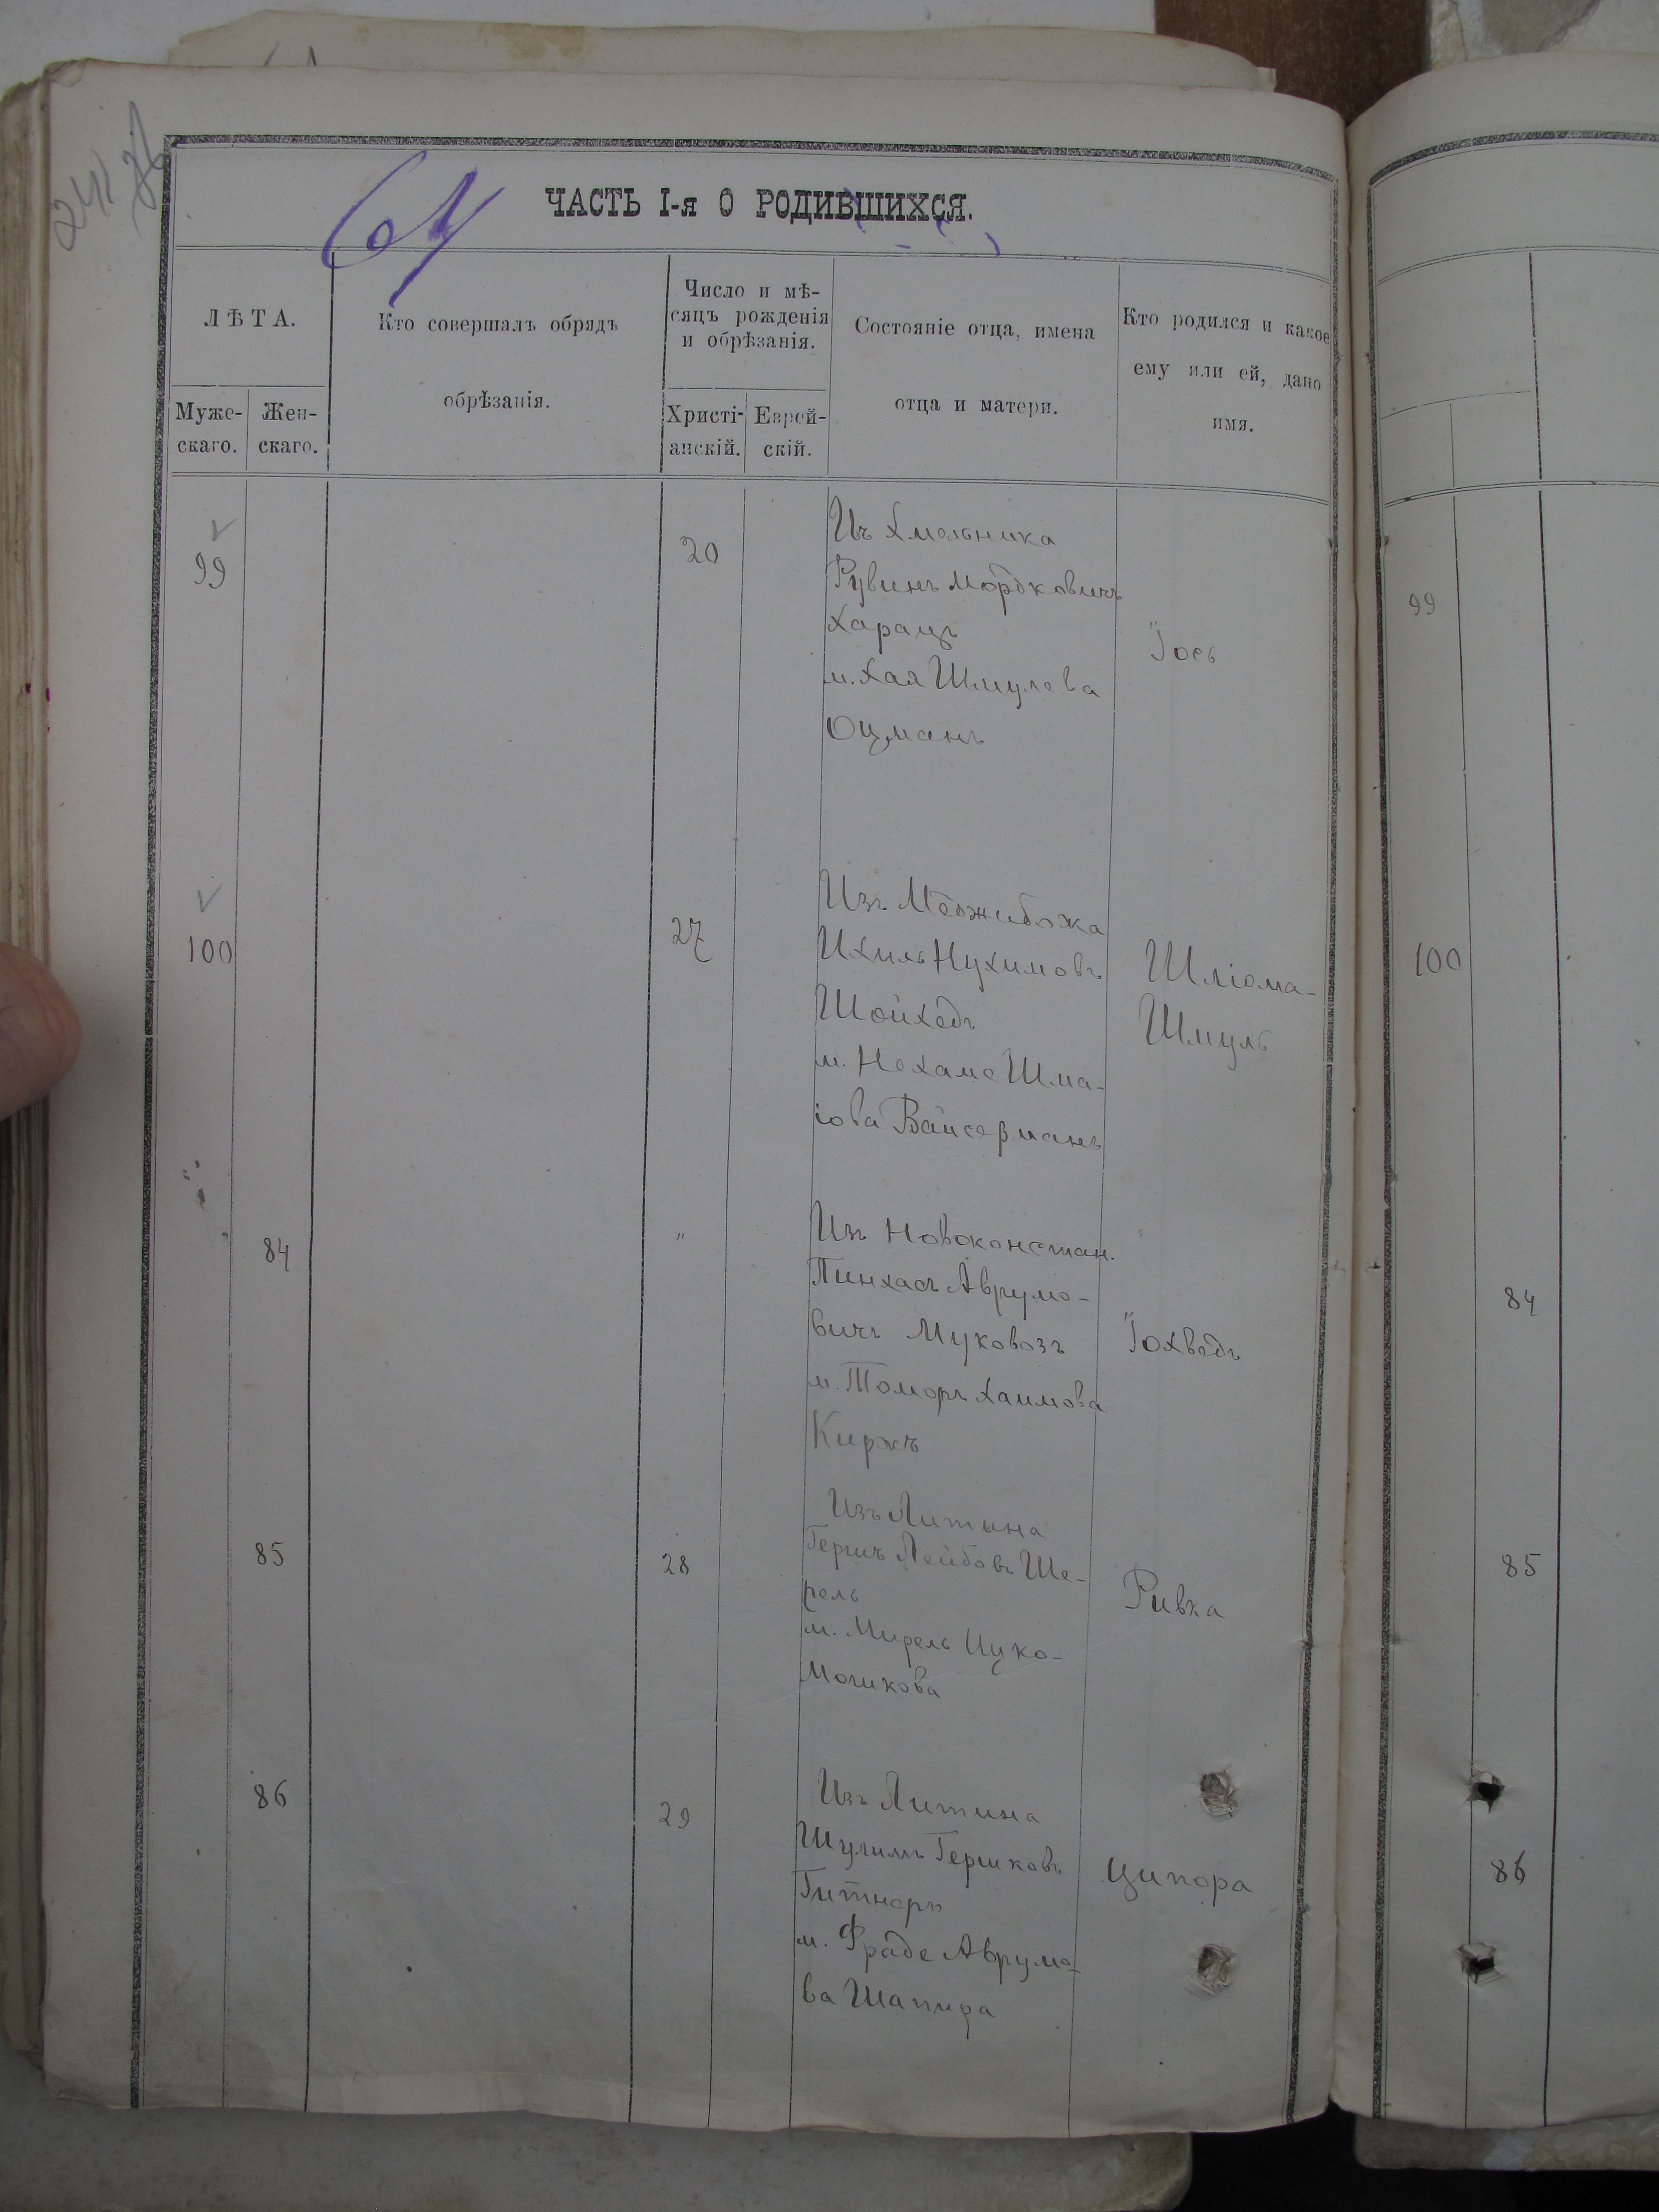 ЧАСТЬ I-я О РОДИВШИХСЯ.
ЛѢТА.
Муже-
скаго.
Жен-
скаго.
Кто совершалъ обрядъ
обрѣзанія.
Число и мѣ-
сяцъ рожденія
и обрѣзанія.
Христі-
анскій.
Еврей-
скій.
Состояніе отца, имена
отца и матери.
Кто родился и какое
ему или ей, дано
имя.
99
20
Изъ Хмельника
Рувинъ Мордковичъ
Харацъ
м. Хая Шмулева
Оцманъ
Іось
99
100
27
Изъ Меджибожа
Ихиль Нухимовъ
Шойхедъ
м. Нехаме Шма-
іова Вайсерманъ
Шліома-
Шмуль
100
84
"
Изъ Новоконстан.
Пинхасъ Аврумо-
вичъ Муковозъ
м. Томоръ Хаимова
Іохведъ
84
85
28
Изъ Литина
Гершъ Лейбовъ Ше-
рель
м. Мирель Ицко-
Мошкова
Ривка
85
86
29
Изъ Литина
Шулимъ Гершковъ
Гитнеръ
м. Фраде Аврумо-
ва Шапира
Ципора
86